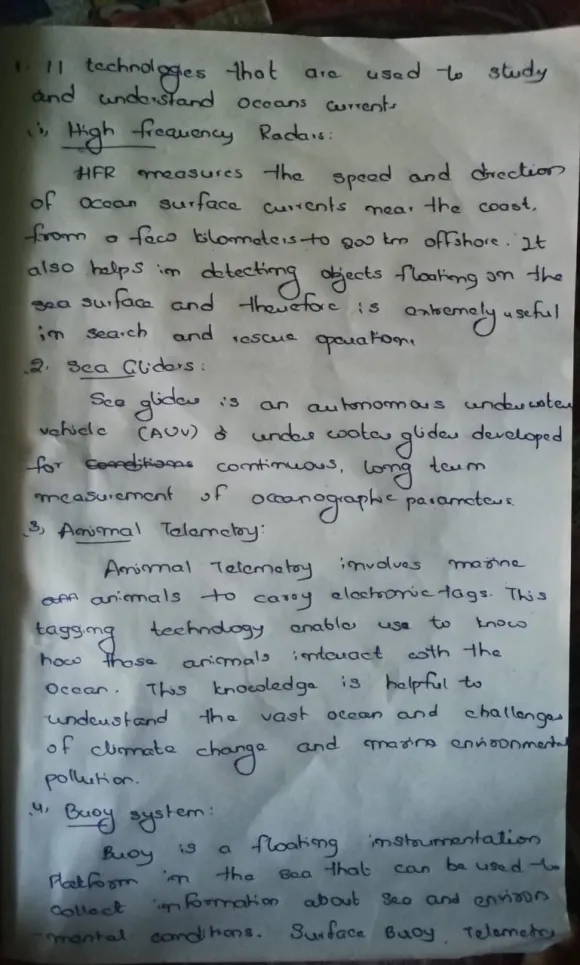 1. 11 technologies that are used to study
and understand oceans currents
(i) High frequency Radars:
HFR measures the speed and direction
of ocean surface currents near the coast.
from a few kilometers to 200 km offshore. It
also helps in detecting objects floating on the
sea surface and therefore is extremely useful
in search and rescue operation.
2. Sea Gliders:
Sea glider is an autonomous underwater
vehicle (AUV) & under water glider developed
for conditions continuous, long term
measurement of oceanographic parameters.
3, Animal Telemetry:
Animal Telemetry involves marine
animals to carry electronic tags. This
tagging technology enables use to know
how those animals interact with the
Ocean. This knowledge is helpful to
understand the vast ocean and challenges
of climate change and marine environmental
pollution.
4, Buoy system:
Buoy is a floating instrumentation
Platform in the sea that can be used to
collect information about sea and environ
-mental conditions. Surface Buoy, Telemetry